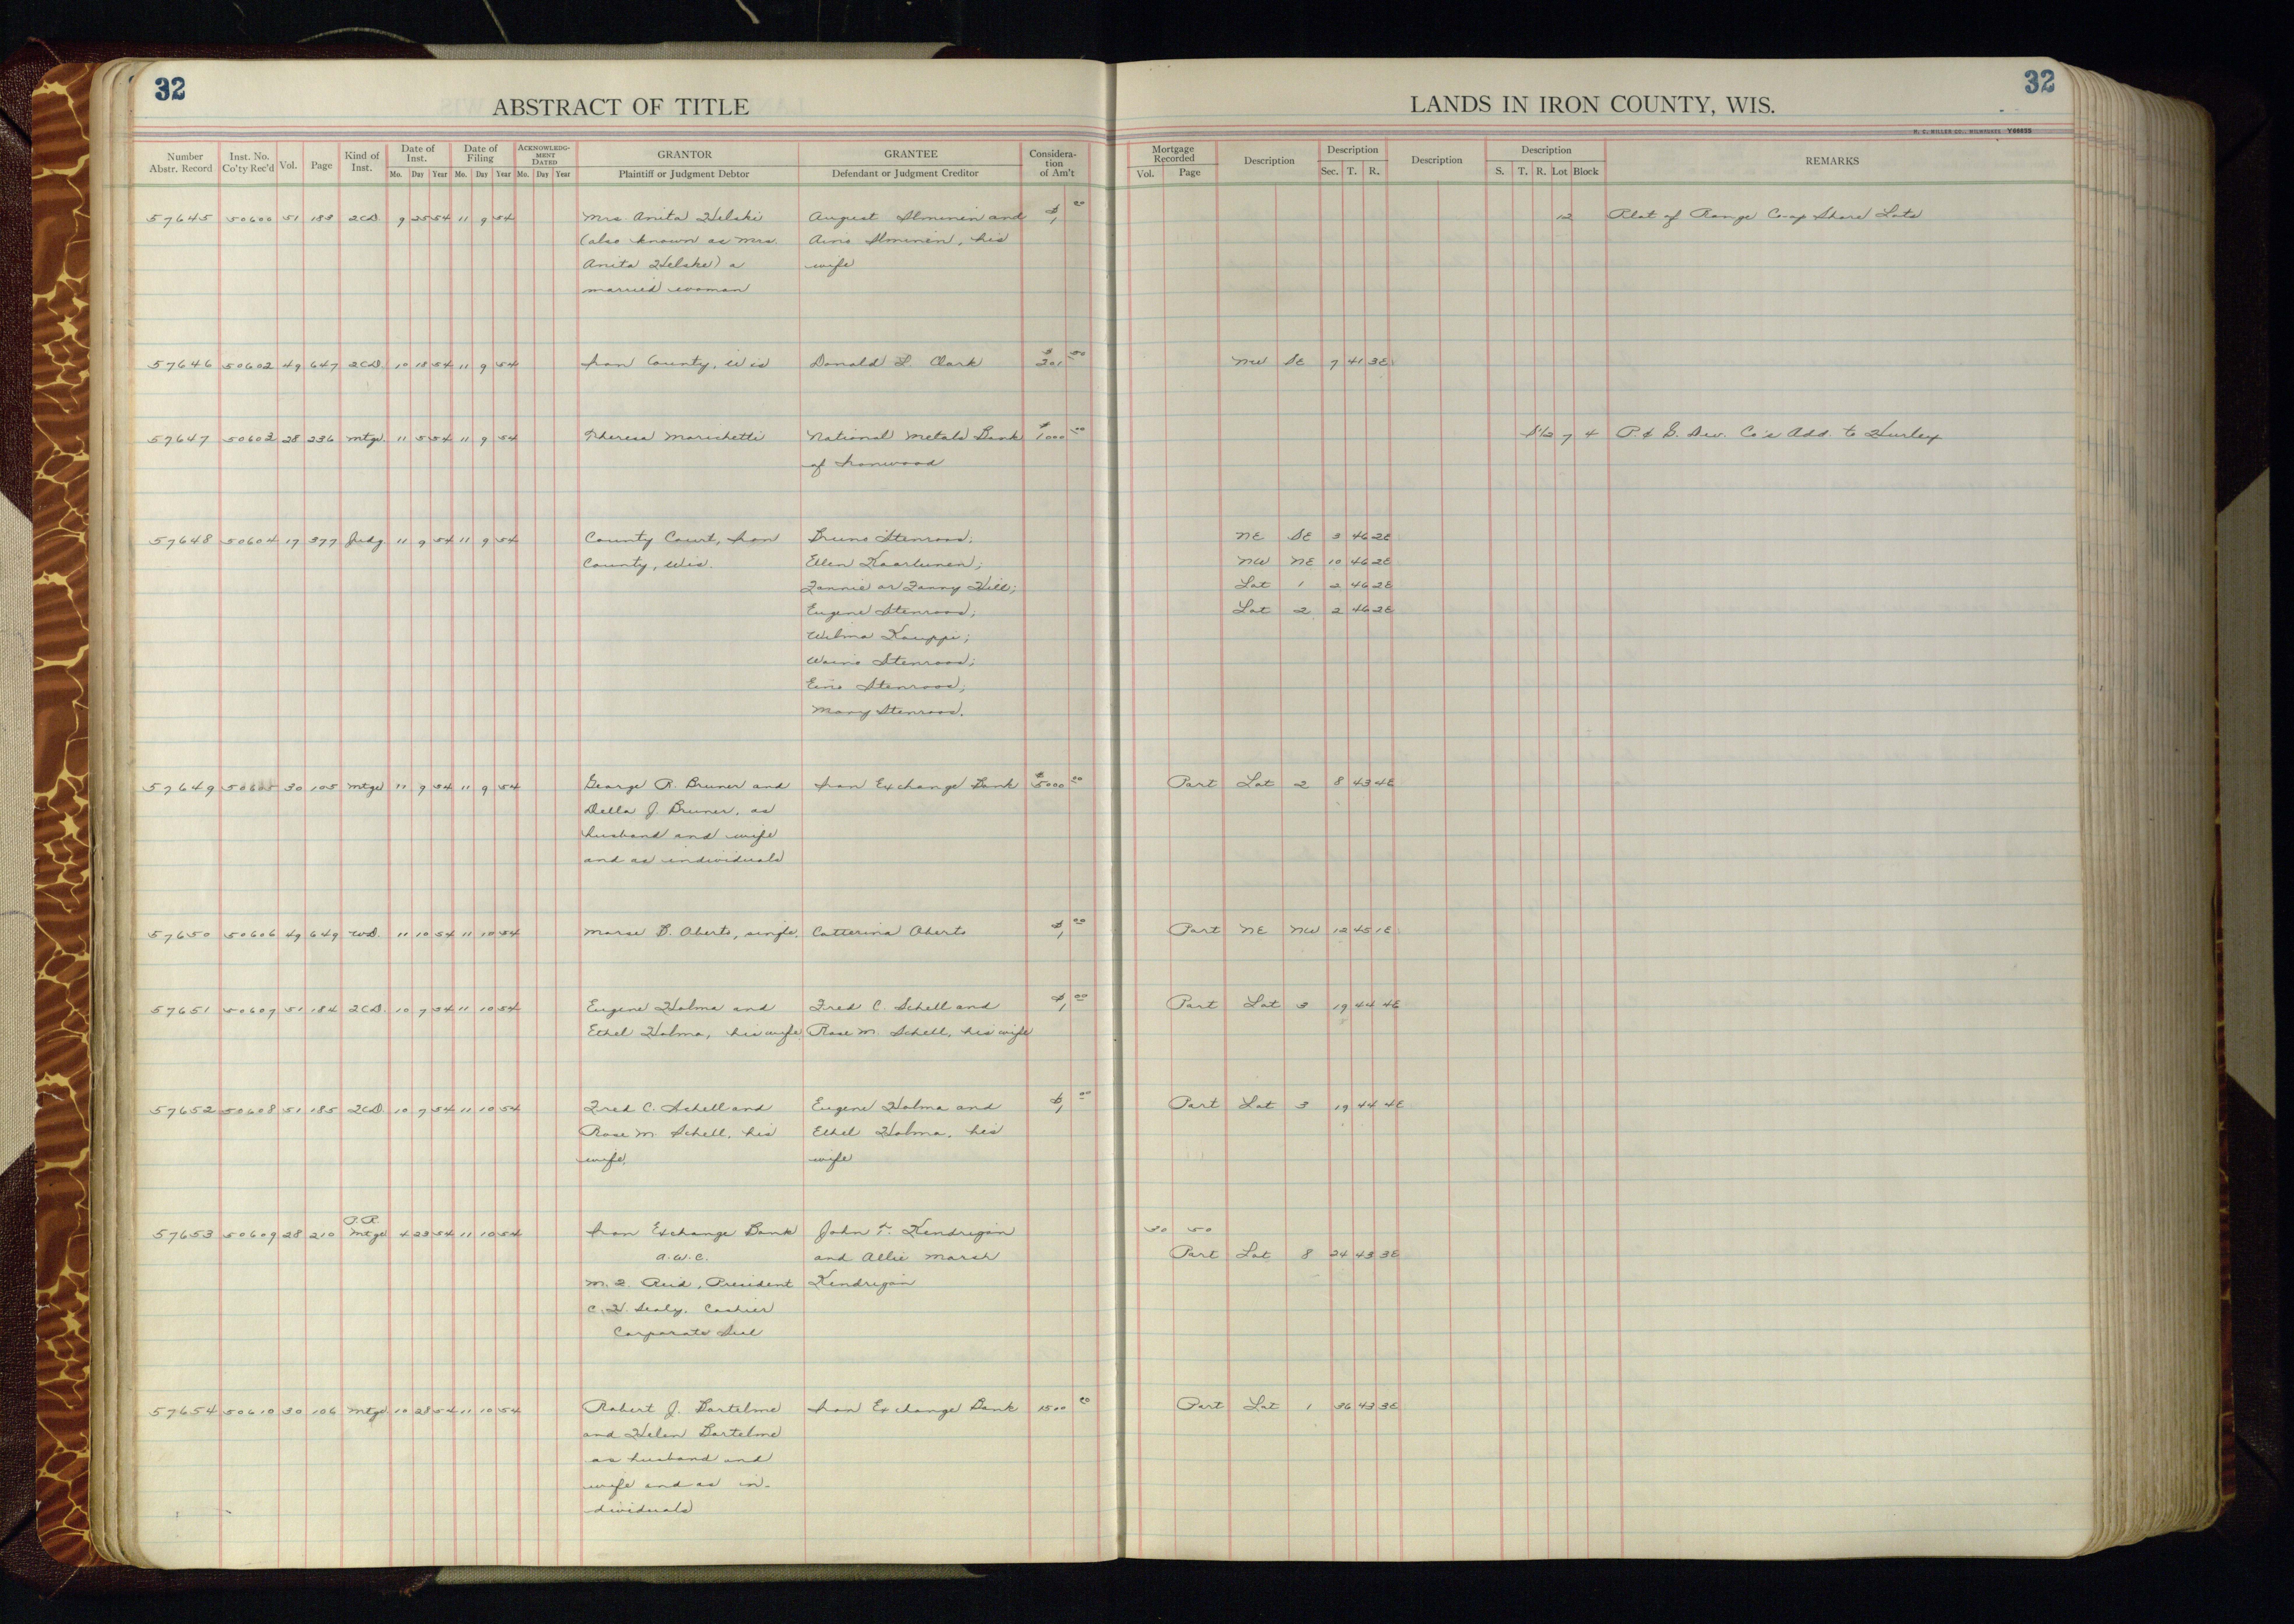 32
ABSTRACT OF TITLE
LANDS IN IRON COUNTY, WIS.
32
H. C. MILLER CO., MILWAUKEE Y66635
Number Abstr. Record
Inst. No. Co'ty Rec'd
Vol.
Page
Kind of Inst.
Date of Inst.
Mo. Day Year
Date of Filing
Mo. Day Year
ACKNOWLEDGMENT DATED
Mo. Day Year
GRANTOR
Plaintiff or Judgment Debtor
GRANTEE
Defendant or Judgment Creditor
Consideration of Am't
Mortgage Recorded
Vol. Page
Description
Description
Sec. T. R.
Description
Description
S. T. R. Lot Block
REMARKS
57645 50600 51 183 2CD 9 25 54 11 9 54 Mrs Anita Helski August Ilminen and $1 00 12 Plat of Range Co-op Shore Lots
(also known as Mrs. Aino Ilminen, his
Anita Helske) a wife
married woman
57646 50602 49 647 2CD. 10 18 54 11 9 54 Iron County, Wis Donald L. Clark $301 00 NW SE 7 41 3E
57647 50603 28 236 Mtge. 11 5 54 11 9 54 Theresa Marichetti National Metals Bank $1000 00 S1/2 7 4 P. & G. Dev. Co's Add. to Hurley
of Ironwood
57648 50604 17 377 Judg 11 9 54 11 9 54 County Court, Iron Bruno Stenroos; NE SE 3 46 2E
County, Wis. Ellen Kaartunen; NW NE 10 46 2E
Fannie or Fanny Hill; Lot 1 2 46 2E
Eugene Stenroos; Lot 2 2 46 2E
Wilma Kauppi;
Waino Stenroos;
Eino Stenroos;
Mary Stenroos.
57649 50605 30 105 Mtge 11 9 54 11 9 54 George R. Bruner and Iron Exchange Bank $5000 00 Part Lot 2 8 43 4E
Della J. Bruner, as
husband and wife
and as individuals
57650 50606 49 649 WD. 11 10 54 11 10 54 Marse B. Aberts, single. Catterina Aberts $1 00 Part NE NW 12 45 1E
57651 50607 51 184 2CD. 10 7 54 11 10 54 Eugene Halma and Fred C. Schell and $1 00 Part Lot 3 19 44 4E
Ethel Halma, his wife Rose M. Schell, his wife
57652 50608 51 185 2CD 10 7 54 11 10 54 Fred C. Schell and Eugene Halma and $1 00 Part Lot 3 19 44 4E
Rose M. Schell, his Ethel Halma, his
wife. wife
P.R.
57653 50609 28 210 Mtge 4 23 54 11 10 54 Iron Exchange Bank John F. Kendrigan 30 50
A.W.C. and Allie Marsh Part Lot 8 24 43 3E
M. J. Reid, President Kendrigan
C. H. Sealy, Cashier
Corporate Seal
57654 50610 30 106 Mtge 10 28 54 11 10 54 Robert J. Bartelme Iron Exchange Bank 1500 00 Part Lot 1 36 43 3E
and Helen Bartelme
as husband and
wife and as in-
dividuals